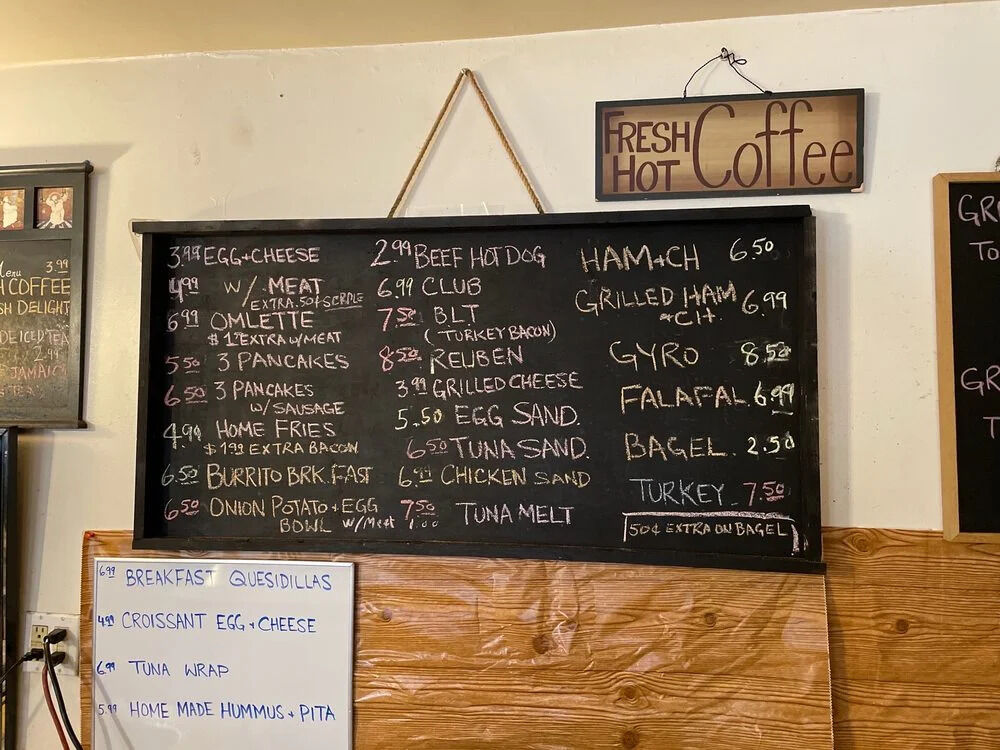 FRESH
HOT
Coffee
3.99 EGG+CHEESE
4.99 W/ MEAT
EXTRA .50¢ SCRPLE
6.99 OMLETTE
EXTRA W/MEAT
5.50 3 PANCAKES
6.50 3 PANCAKES
W/ SAUSAGE
4.99 HOME FRIES
$1.99 EXTRA BACON
6.50 BURRITO BRK.FAST
6.50 ONION POTATO + EGG
BOWL W/Meat 1.00
2.99 BEEF HOT DOG
6.99 CLUB
7.50 BLT
(TURKEY BACON)
8.50 REUBEN
3.99 GRILLED CHEESE
5.50 EGG SAND.
6.50 TUNA SAND.
6.99 CHICKEN SAND
7.50 TUNA MELT
HAM+CH 6.50
GRILLED HAM 6.99
+CH.
GYRO 8.50
FALAFAL 6.99
BAGEL 2.50
TURKEY 7.50
50¢ EXTRA ON BAGEL
6.99 BREAKFAST QUESIDILLAS
4.99 CROISSANT EGG + CHEESE
6.99 TUNA WRAP
5.99 HOME MADE HUMMUS + PITA
Menu 3.99
COFFEE
DELIGHT
ICED TEA
2.99
JAMAIC
GR
To
GR
T